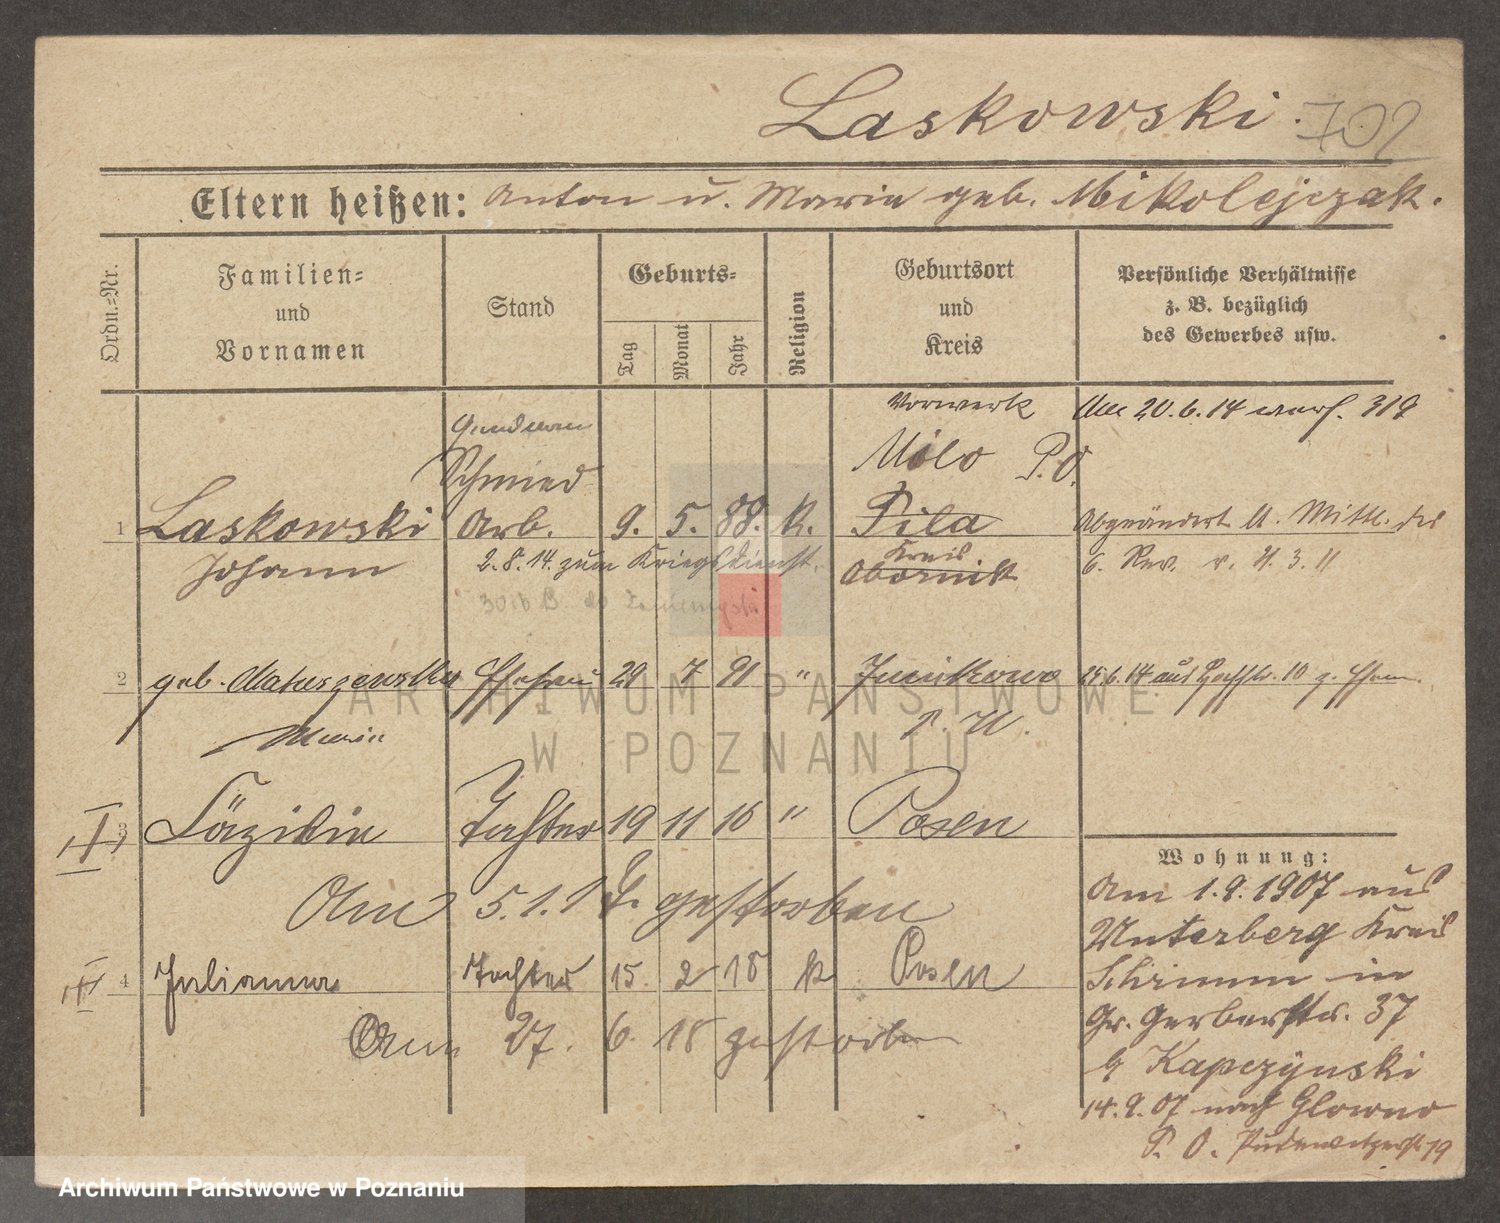 Laskowski. 702
Eltern heißen: Anton u. Maria geb. Mikolejczak.
Ordn.=Nr.
Familien= und Vornamen
Stand
Geburts=
Tag
Monat
Jahr
Religion
Geburtsort und Kreis
Persönliche Verhältnisse
z. B. bezüglich
des Gewerbes usw.
Vorwerk Am 20.6.14 verh. 319
Schmied Milo P.O.
1 Laskowski Arb. 9. 5. 88. K. Pila Abgeändert lt. Mittl. des
Johann 2.8.14. zum Kriegsdienst. Kreis Obornik 6. Rev. v. 4.3.11
2 geb. Matuszewska Ehefrau 29 7 91 " Junikowo 25.6.14 aus 10 z. Ehem.
Maria P. W.
3 Cäzilie Tochter 19 11 16 " Posen
Am 5.1.17. gestorben
4 Julianna Tochter 15. 2 18 k Posen
Am 27. 6. 18 gestorben
Wohnung:
Am 1.9.1907 aus
Unterberg Kreis
Schrimm in
Gr. Gerberstr. 37
b Kapczynski
14.9.07 nach Glowno
P. O. Pudewitzerstr 19
ARCHIWUM PAŃSTWOWE
W POZNANIU
Archiwum Państwowe w Poznaniu